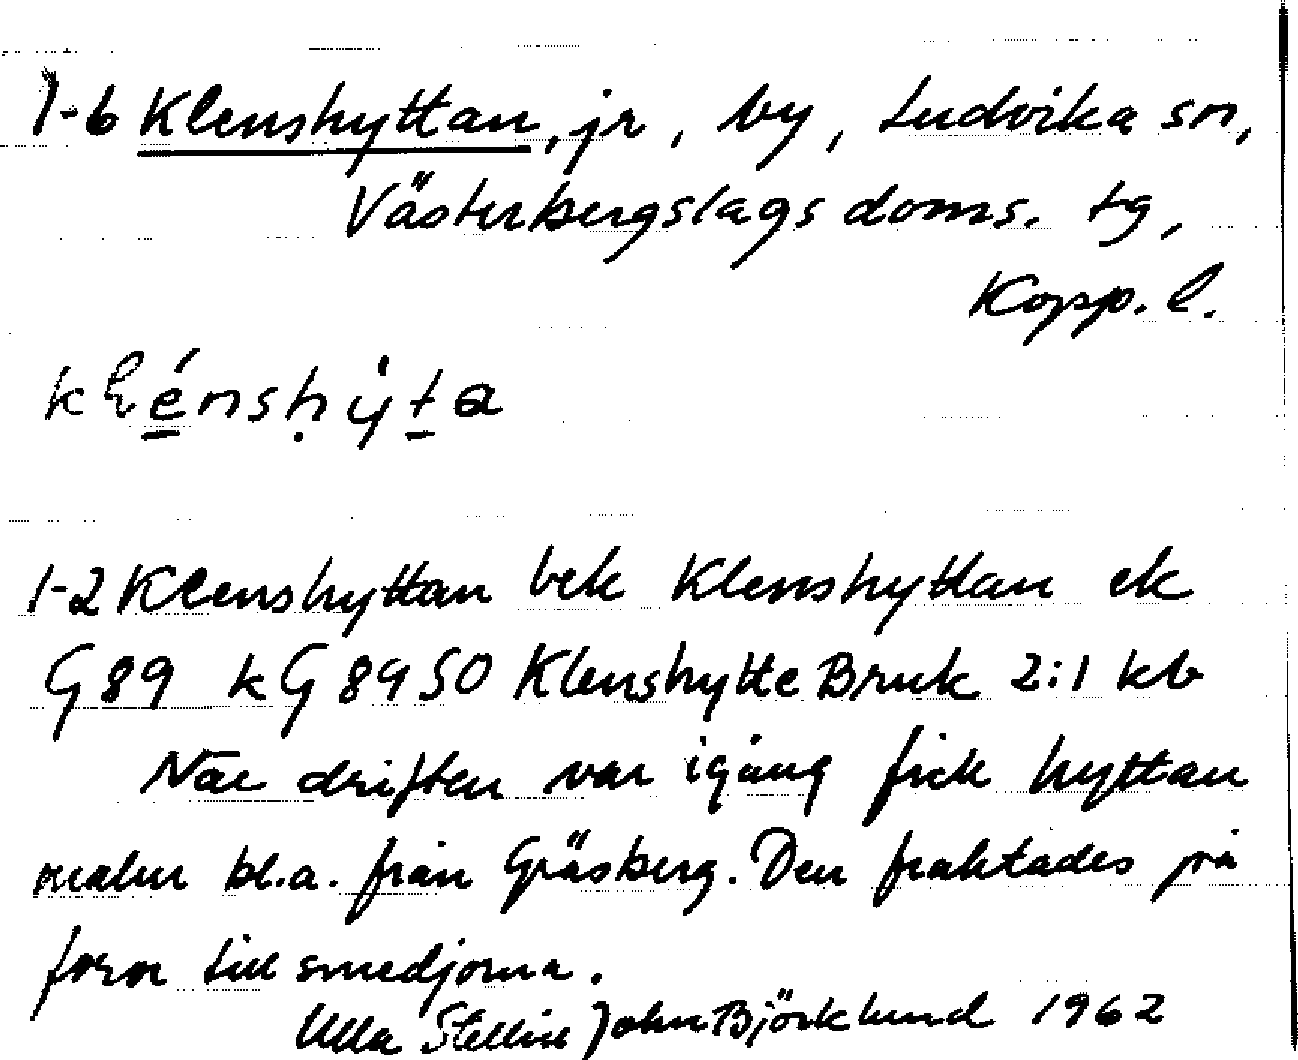 1-6 Klenshyttan, jr, by, Ludvika sn,
Västerbergslags doms. tg,
Kopp. l.
1-2 Klenshyttan bek Klenshyttan ek
G 89 kG 8950 Klenshytte Bruk 2:1 kb
När driften var igång fick hyttan
malm bl.a. från Gräsberg. Den fraktades på
foror till smedjorna.
Ulla Stellin John Björklund 1962